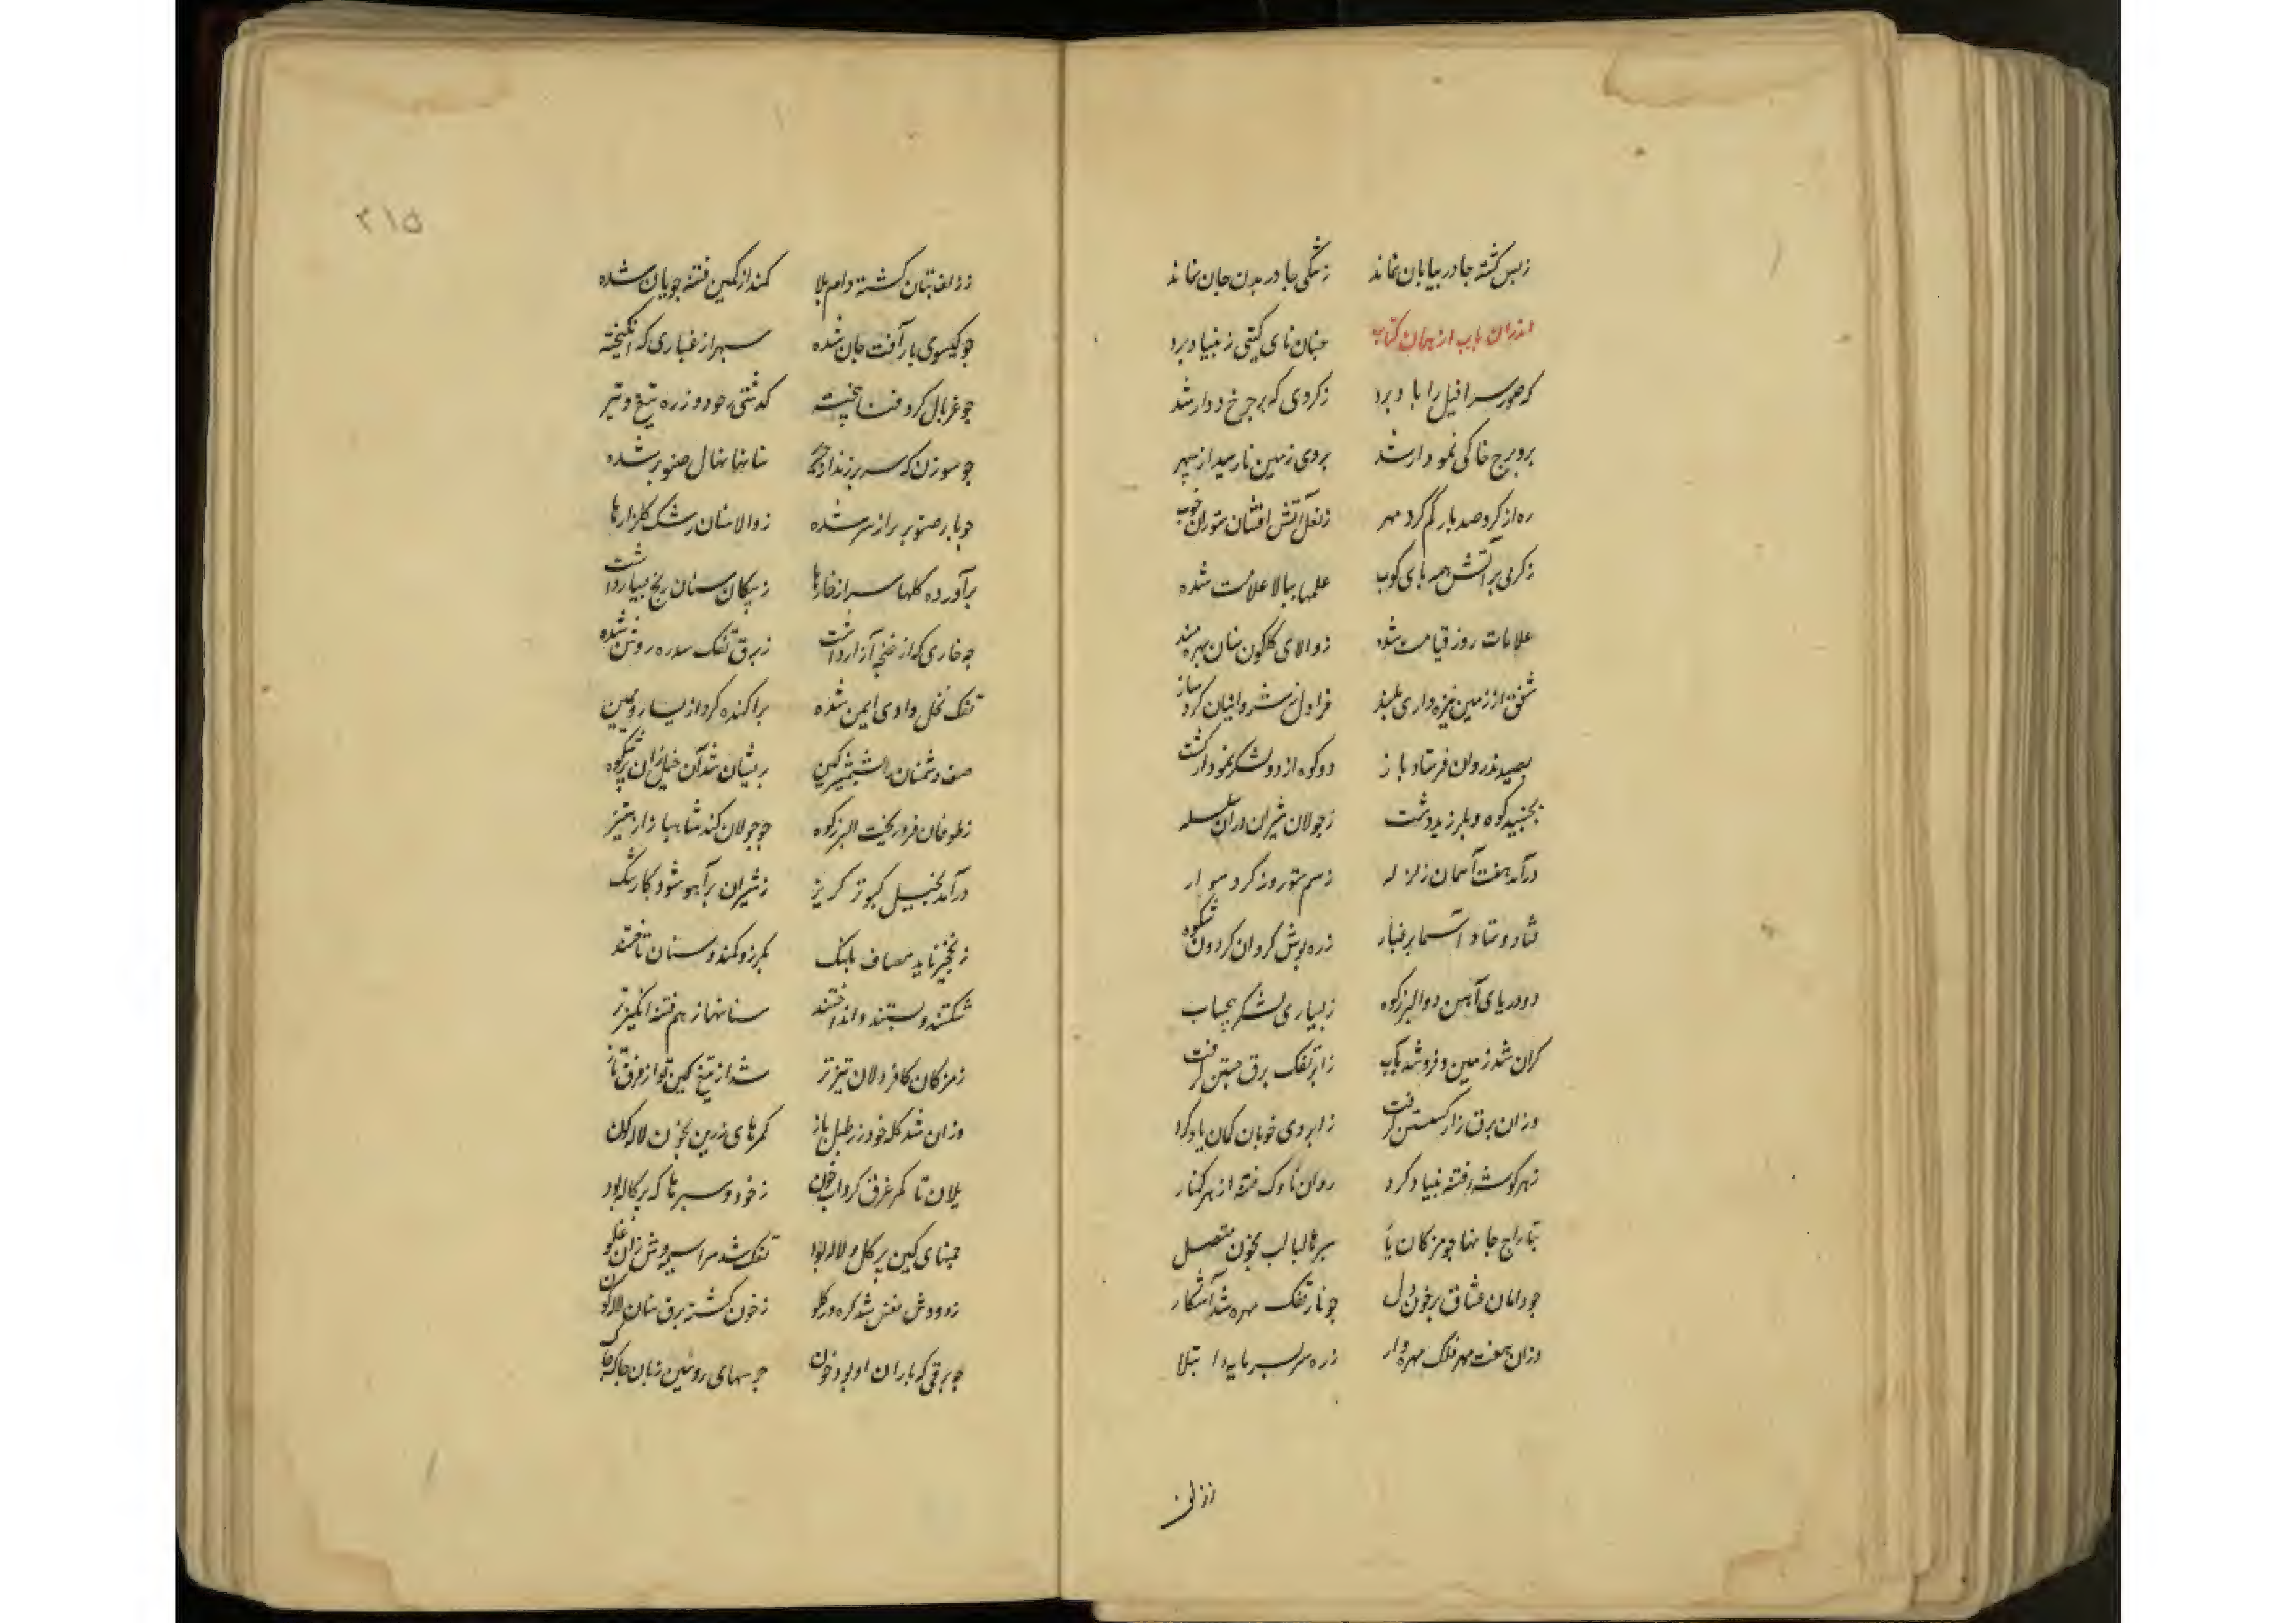 زبس کشته جا در بیابان نماند    زتنگی جا در بدن جان نماند
اندران باب از همان کتاب    چنان نای گیتی ز بنیاد برد
که صور سرافیل را باد برد    زکردی که بر چرخ دوار شد
بروبرج خاکی نمودار شد    بروی زمین نارسید از سپهر
ره از کرد صد بار کم کرد مهر    زنعل آتش افشان ستوران خوب
زکرمی بر آتش همه پای کوب    علمها ببالا علامت شده
علامات روز قیامت شده    زوالای کلکون سنان بهره مند
شفق از زمین نیزه واری بلند    قراول شد و افیان کرد ساز
بصید تذروان فرستاد باز    دو کوه از دو لشکر نمودار کشت
بجنبید کوه و بلرزید دشت    زجولان شیران دران سلسله
درآمد بهفت آسمان زلزله    زسم ستور و ز کرد سوار
شد و شد آسما بر غبار    زره پوش کردان کردون شکوه
دو دریای آهن دو البرز کوه    زبسیاری لشکر بیحساب
کران شد زمین و فرو شد بآب    زابر تفک برق جستن کرفت
وزان برق زار کسستن کرفت    زابروی خوبان کمان یاد کرد
زهر کوشه فتنه بنیاد کرد    روان ناوک فتنه از هر کنار
بتاراج جانها چو مژکان یار    سپرها لبالب بخون متصل
چو دامان عشاق پر خون دل    چو نار تفک مهره شد آشکار
وزان هفت مهر فلک مهره وار    زره سر بسر مایه ابتلا
ززلف
۲۱۵
ززلف بتان کشته دام بلا    کمند از کمین فتنه جویان شده
چو کیسوی یار آفت جان شده    سپر از غباری که انکیخته
چو غربال کرد فنا بیخته    کذشتی زخود و زره تیغ و تیر
چو سوزن که سر برزند از حریر    سنانها نهال صنوبر شده
چو بار صنوبر بر از سر شده    زوالا سنان رشک کلزارها
برآورده کلها سر از خارها    زپیکان سنان رنج بسیار داشت
چه خاری که از غنچه آزار داشت    زبرق تفک سدره روشن شده
تفک نخل وادی ایمن شده    پراکنده کرد از یسار و یمین
صف دشمنان را بشمشیر کین    پریشان شد آن خیل ایران پر شکوه
زطوفان فرو ریخت البرز کوه    چو جولان کند شاهباز از ستیز
درآمد بخیل کبوتر کریز    زشیران برآهو شود کار تنک
زنخچیر ناید مصاف پلنک    بکرز و کمند و سنان تاختند
شکستند و بستند و انداختند    سنانها ز هم فتنه انکیزتر
زمژکان کافر دلان تیزتر    شد از تیغ کین تو از فرق تاز
وزان شد کله خود زر طبل باز    کمرهای زرین بخون لاله کون
یلان تا کمر غرق کرداب خون    زخود و سپرها که پرکاله بود
چمنای کین پر کل و لاله بود    تفک شد سراسیمه وش زان غلو
زدودش نفس شد کره در کلو    زخون کشته برق سنان لاله کون
چو برقی که باران او بود خون    جرسهای روئین زبان چاک چاک